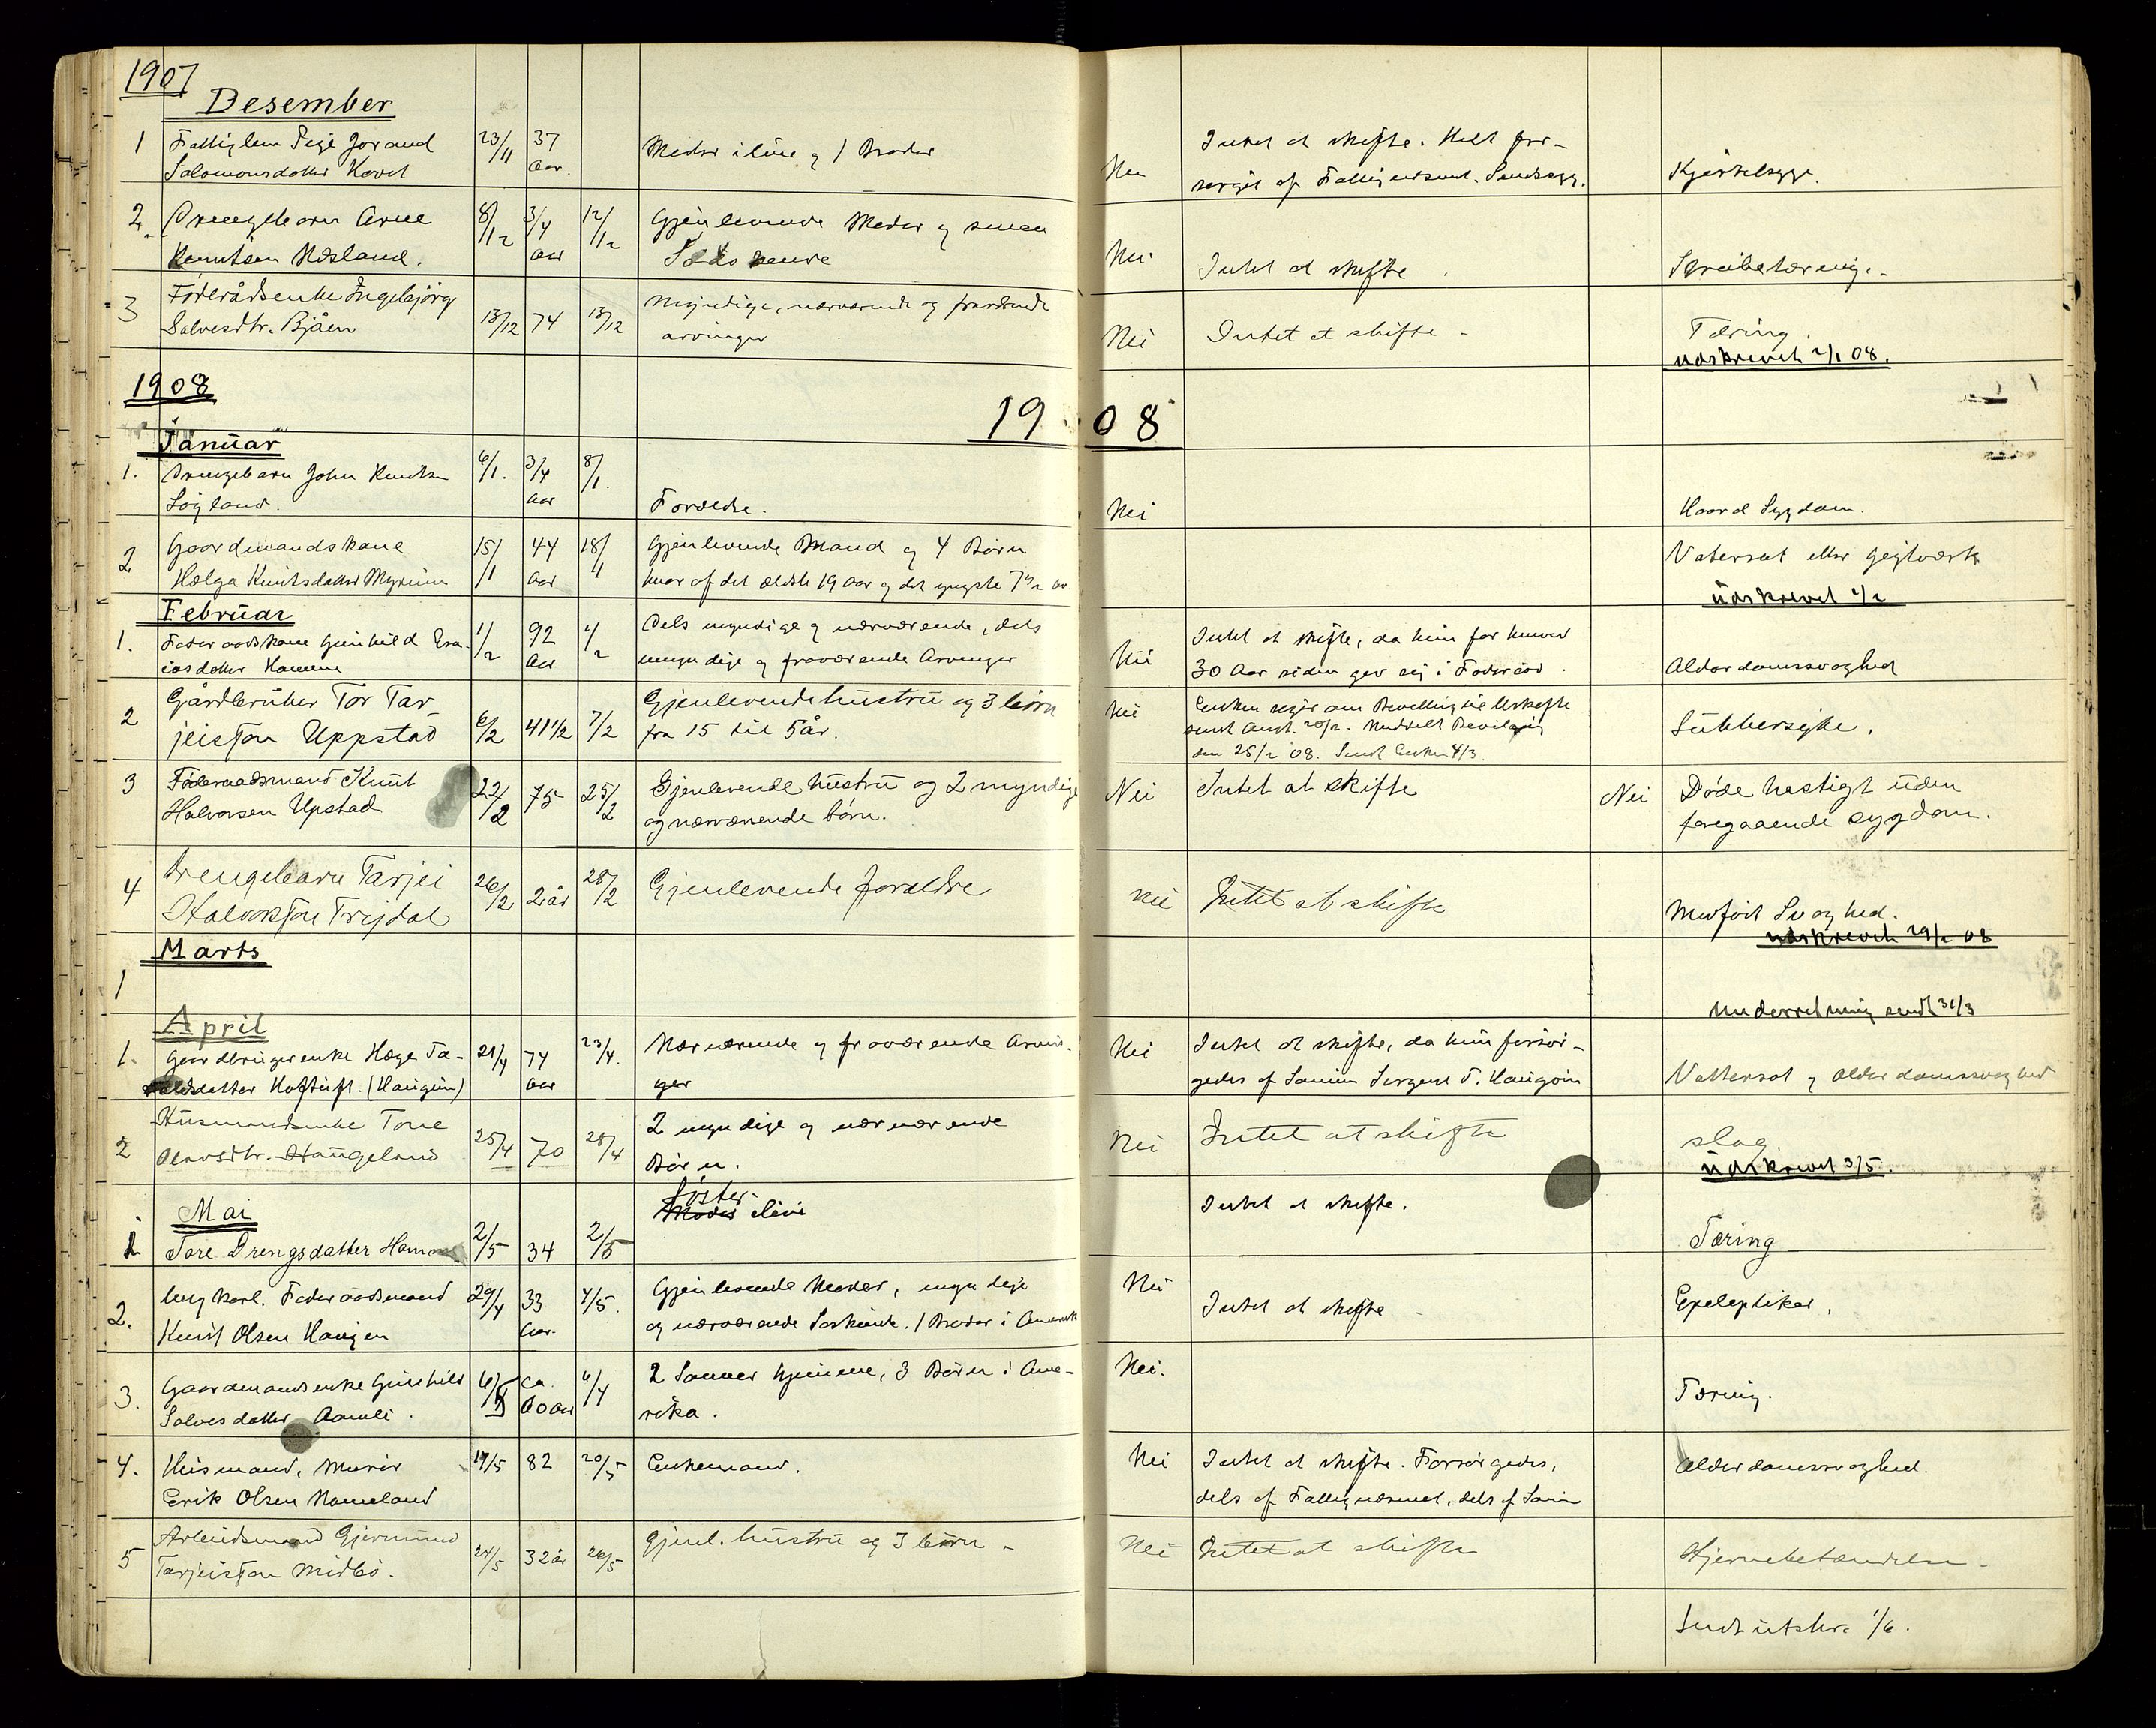 1907
Desember
1 Fattiglem Pige Jorand 23/11 37 Moder ilive og 1 Broder Nei Intet at skifte. Helt for-
Salomonsdatter Hovet Aar. sørget af Fattigvæsenet. Sindssyg. Kjertelsyge.
2. Drengebarn Arne 8/12 3/4 12/12 Gjenlevende Moder og smaa
Knutsen Næsland. Aar Søskende Nei Intet at skifte.
3 Føderådsenke Ingebjörg Myndige, nærværende og fraværende
Salvesdtr. Bjåen 13/12 74 13/12 arvinger Nei Intet at skifte - Tæring.
Udskrevet 2/1 08.
1908
1908
Januar
1. Drengebarn John Knutsen 6/1. 3/4 8/1.
Aar Forældre. Nei Haard Sygdom.
2 Gaardmandskone 15/1 44 18/1 Gjenlevende Mand og 4 Børn Vatersot eller Gigtværk
Helga Knutsdatter Myrum Aar hvoraf det ældste 19 Aar og det yngste 7 1/2 Aar.
Udskrevet 1/2
Februar
1. Føderaadskone Gunhild Esa- 1/2 92 4/2 Dels myndige og nærværende, dels Nei Intet at skifte, da hun for henved
iasdatter Homme Aar myndige og fraværende Arvinger 30 Aar siden gav sig i Føderaad. Alderdomssvaghed
2 Gårdbruker Tor Tar- 6/2 41 1/2 7/2 Gjenlevende hustru og 3 börn Nei Enken søger om Bevilling til Uskifte
jeisson Uppstad fra 15 til 5 år. sendt Amt. 20/2. Meddelt Bevilgning
den 25/2 08. Sendt Enken 4/3. Subbersyke.
3 Føderaadsmand Knut 22/2 75 25/2 Gjenlevende hustru og 2 myndige Nei Intet at skifte Nei Døde hastigt uden
Halvorsen Upstad og nærværende børn. foregaaende sygdom.
4 Drengebarn Tarjei 26/2 2 år 28/2 Gjenlevende forældre Nei Intet at skifte
Halvorsson Trijdal Medfödt Svaghed.
Udskrevet 29/2 08
Marts
1
Underretning sendt 31/3
April
1. Gaardbrugerenke Hæge Ta- 21/4 74 23/4. Nærværende og fraværende Arvin- Nei Intet at skifte, da hun forsør-
aldsdatter Hoftuft. (Haugum) Aar ger gedes af Sønnen Sergent T. Haugum Vattersot og Alderdomssvaghed
2 Husmandsenke Tone 25/4 70 28/4 2 myndige og nærværende Nei Intet at skifte slag
Olavsdtr. Haugeland Børn. Udskrevet 3/5.
Mai Søster Intet at skifte.
1 Tore Drengsdatter Homme 2/5 34 2/5 Moder ilive Tæring
2. Ungkarl. Føderaadsmand 29/4 33 4/5. Gjenlevende Moder, myndige Nei Intet at skifte - Epeleptiker.
Knut Olsen Haugen Aar. og nærværende Søskende. 1 Broder i Amerika
3. Gaardmandsenke Gunhild 6/5 ca. 6/4 2 Sønner hjemme, 3 Børn i Ame- Nei. Tæring.
Salvesdatter Aamli. 80 Aar rika.
4. Husmand, Murer 14/5 82 20/5 Enkemand. Nei Intet at skifte. Forsørgedes, Alderdomssvaghed.
Erik Olsen Homeland dels af Fattigvæsenet, dels af Sønn
5 Arbeidsmand Gjermund 24/5 32 år 26/5 Gjenl. hustru og 3 börn - Nei Intet at skifte Hjernebetændelse -
Tarjeisson Midbö.
Sendt utskr. 1/6.